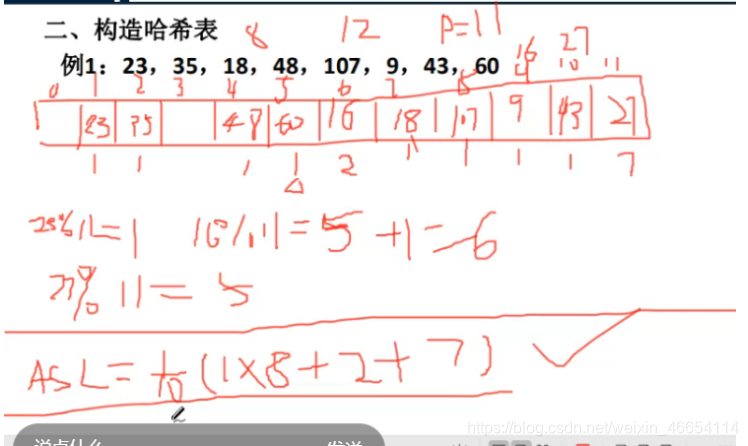 二、构造哈希表 8 12 P=11
例1：23，35，18，48，107，9，43，60 16 27
0 1 2 3 4 5 6 7 8 9 10 11
23 35 48 60 16 18 107 9 43 27
1 1 1 1 2 1 1 1 1 7
23%11=1 16%11=5+1=6
27%11=5
ASL=1/10(1×8+2+7)
https://blog.csdn.net/weixin_46654114